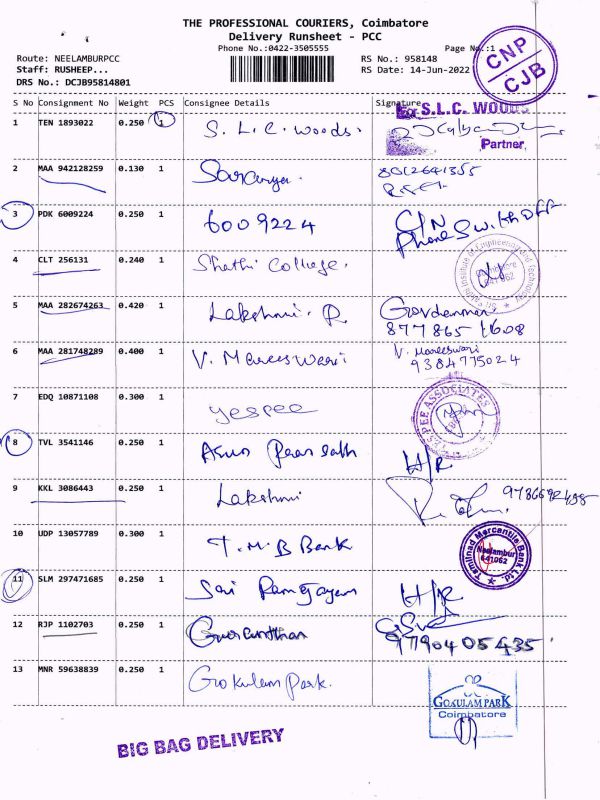 THE PROFESSIONAL COURIERS, Coimbatore
Delivery Runsheet - PCC
Phone No.:0422-3505555
Page No.:1
Route: NEELAMBURPCC
RS No.: 958148
Staff: RUSHEEP...
RS Date: 14-Jun-2022
DRS No.: DCJB95814801
CNP
CJB
S No Consignment No Weight PCS Consignee Details Signature
For S.L.C. WOODS
1 TEN 1893022 0.250 1 S. L. C. Woods.
Partner.
2 MAA 942128259 0.130 1 Saranya.
3 PDK 6009224 0.250 1 6009224 C/N
Phone Switch Off
4 CLT 256131 0.240 1 Shathi College.
Coimbatore
641062
5 MAA 282674263 0.420 1 Lakshmi. R
877865 1608
6 MAA 281748289 0.400 1 V. Mareeswari V. Mareeswari
9384775024
7 EDQ 10871108 0.300 1 yespee
YES PEE ASSOCIATES
8 TVL 3541146 0.250 1 Arun H/R
9 KKL 3086443 0.250 1 Lakshmi
10 UDP 13057789 0.300 1 T.M.B Bank
Tamilnad Mercantile Bank Ltd.
Neelambur
641062
11 SLM 297471685 0.250 1 Sai H/R
12 RJP 1102703 0.250 1
9790405435
13 MNR 59638839 0.250 1 Gokulam Park.
GOKULAM PARK
Coimbatore
BIG BAG DELIVERY